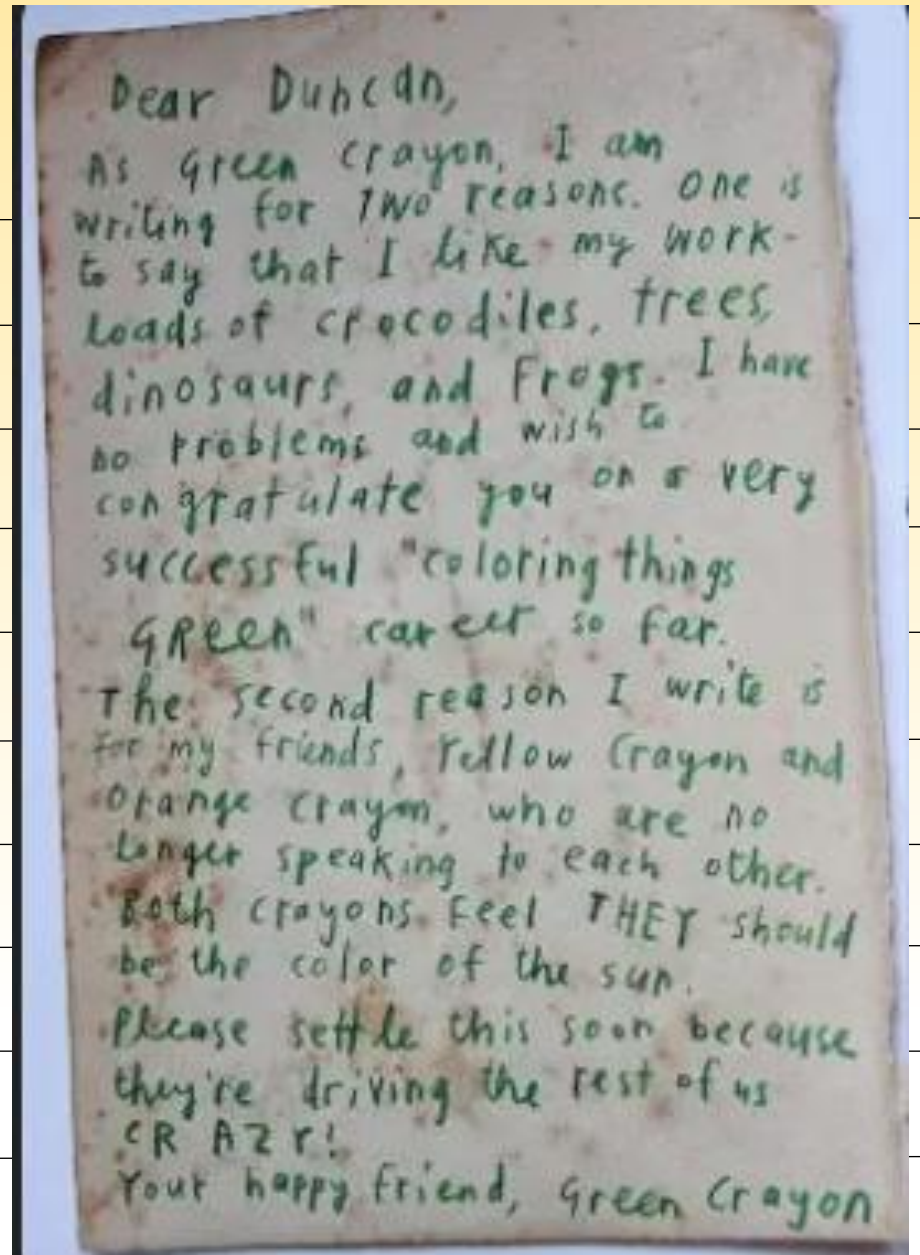 Dear Duncan,
As Green Crayon, I am
writing for TWO reasons. One is
to say that I like my work-
Loads of crocodiles, trees,
dinosaurs, and Frogs. I have
no Problems and wish to
congratulate you on a very
successful "coloring things
GReen" career so far.
The second reason I write is
For my friends, Yellow Crayon and
Orange Crayon, who are no
Longer speaking to each other.
Both crayons Feel THEY should
be the color of the sun.
Please settle this soon because
they're driving the rest of us
CRAZY!
Your happy friend, Green Crayon